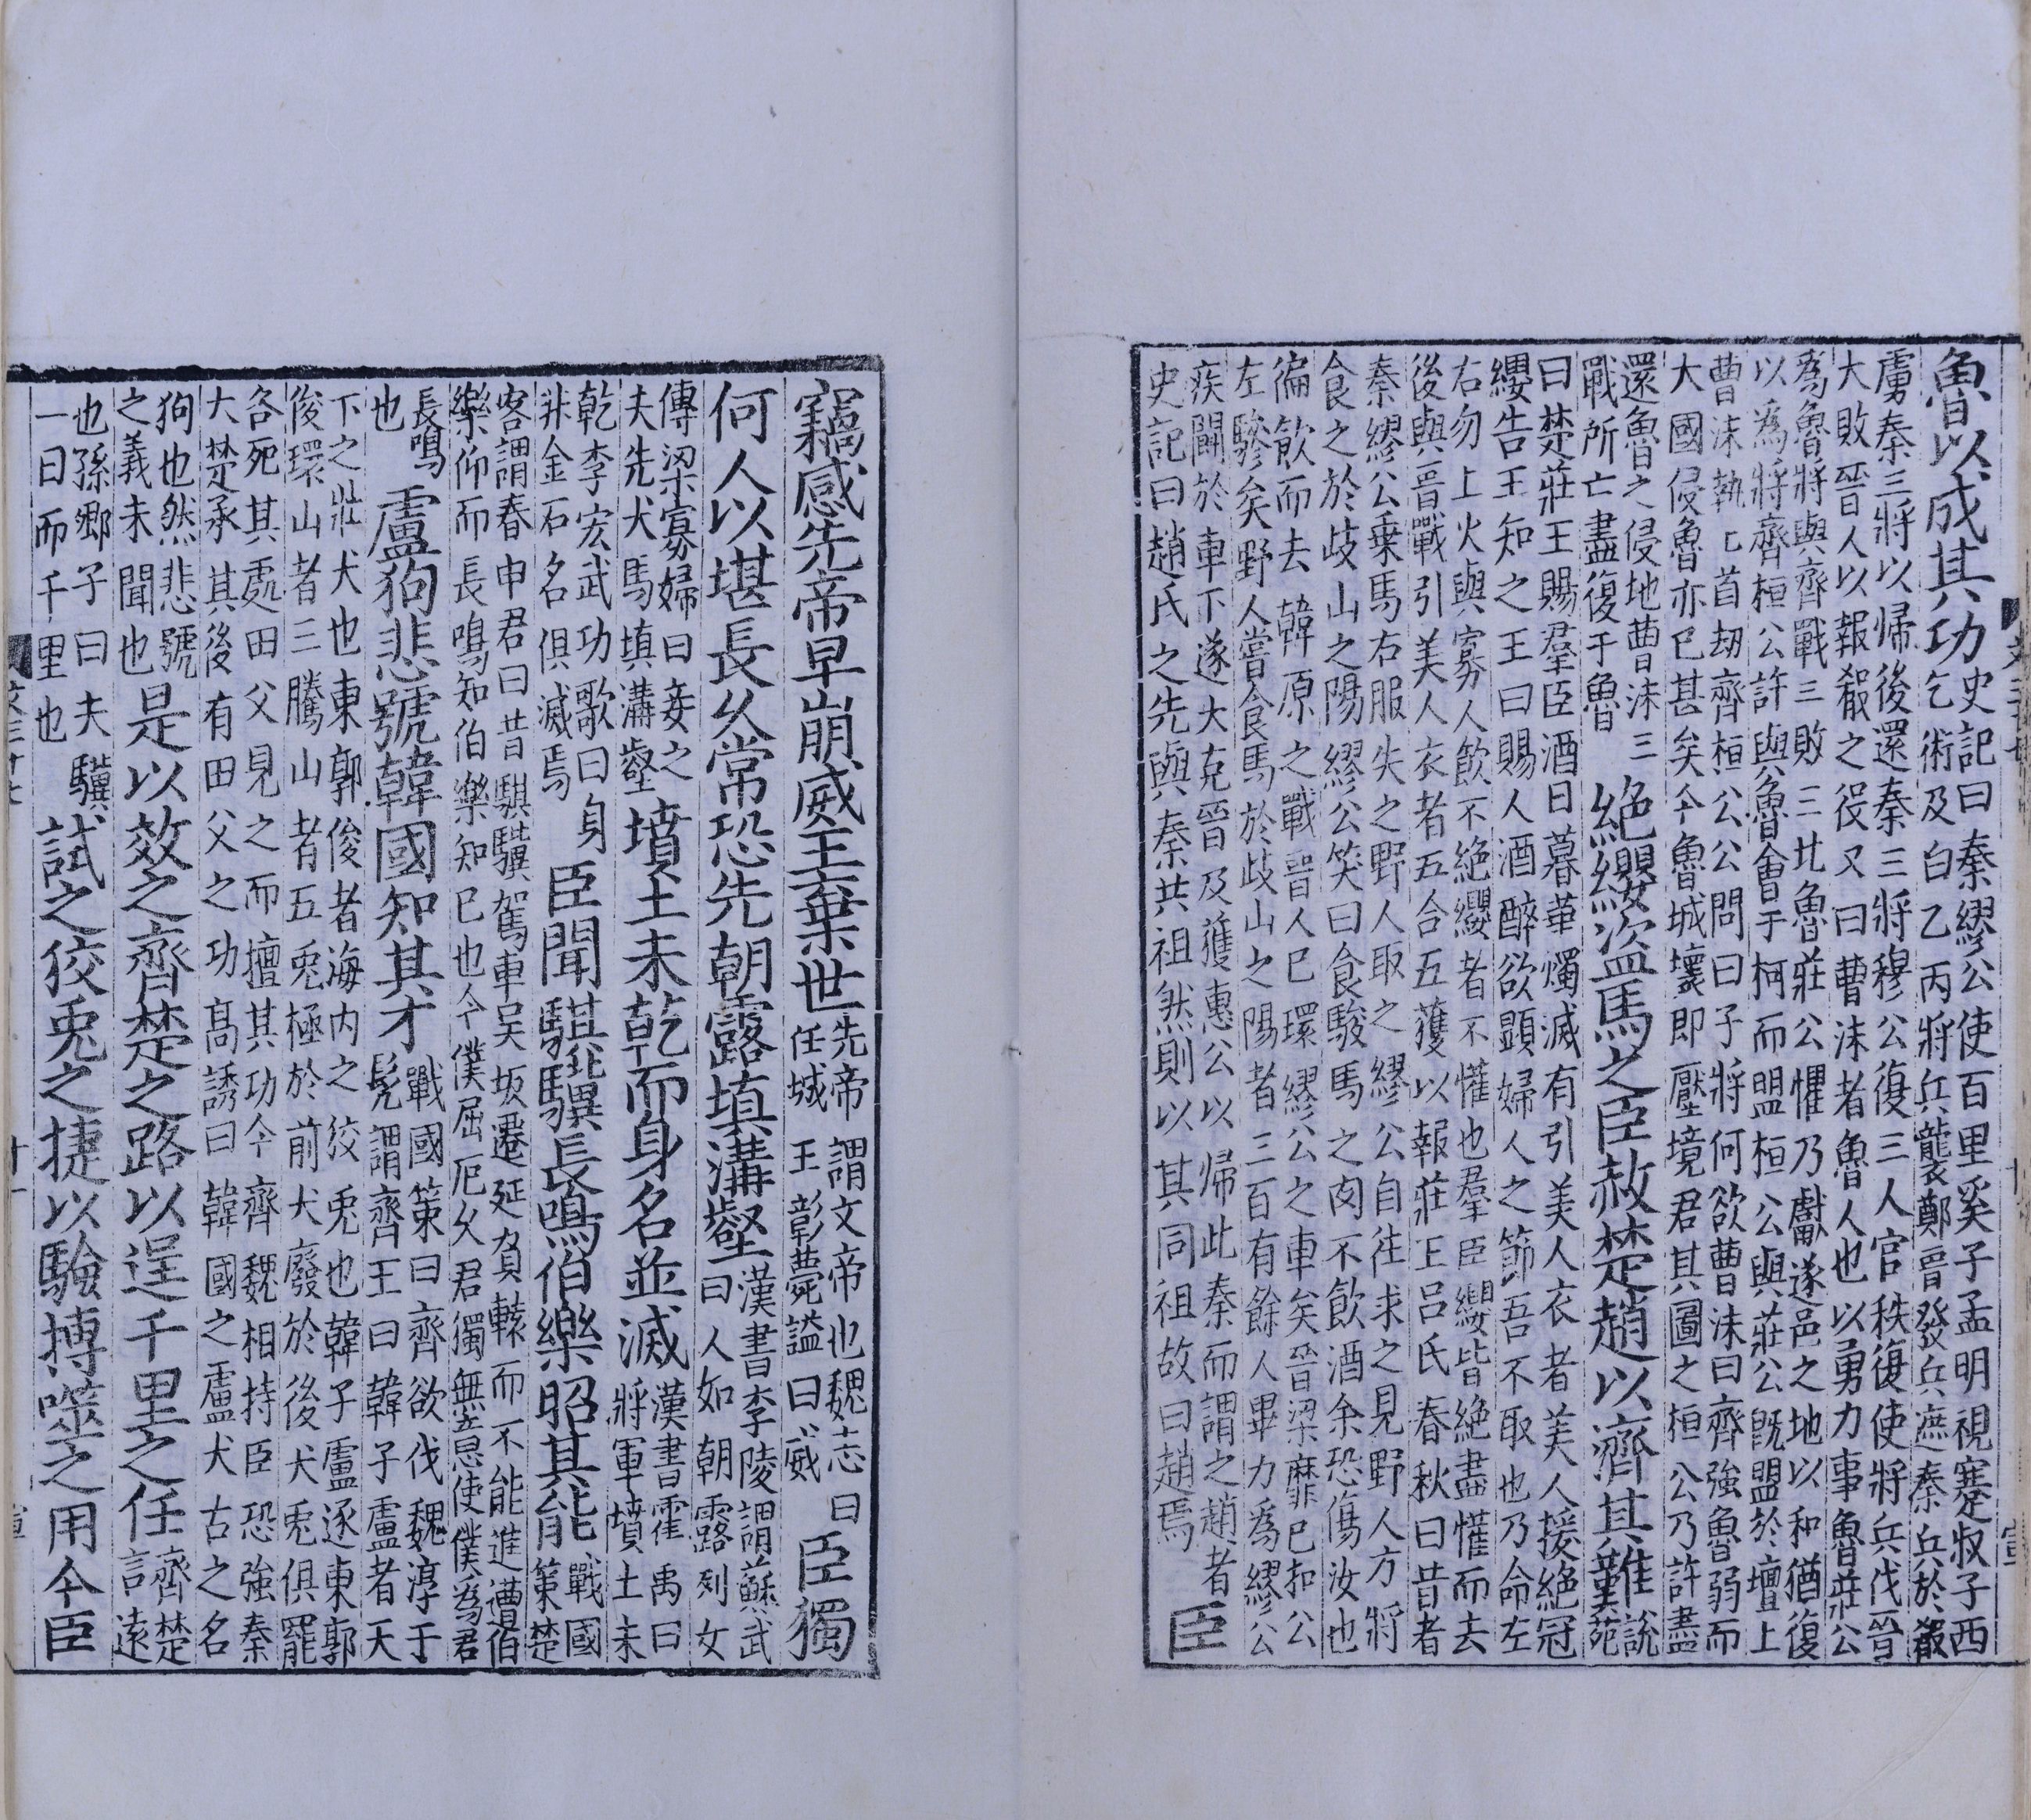 魯以成其功史記曰秦繆公使百里奚子孟明視蹇叔子西
乞術及白乙丙將兵襲鄭晉發兵遮秦兵於殽
虜秦三將以歸後還秦三將穆公復三人官秩復使將兵伐晉
大敗晉人以報殽之役又曰曹沬者魯人也以勇力事魯莊公
爲魯將與齊戰三敗三北魯莊公懼乃獻遂邑之地以和猶復
以爲將齊桓公許與魯會于柯而盟桓公與莊公旣盟於壇上
曹沬執匕首劫齊桓公公問曰子將何欲曹沬曰齊強魯弱而
大國侵魯亦已甚矣今魯城壞即壓境君其圖之桓公乃許盡
還魯之侵地曹沬三
戰所亡盡復于魯
絶纓盜馬之臣赦楚趙以齊其難說
苑
曰楚莊王賜羣臣酒日暮華燭滅有引美人衣者美人援絶冠
纓告王知之王曰賜人酒醉欲顯婦人之節吾不取也乃命左
右勿上火與寡人飲不絶纓者不懽也羣臣纓皆絶盡懽而去
後與晉戰引美人衣者五合五獲以報莊王呂氏春秋曰昔者
秦繆公乗馬右服失之野人取之繆公自往求之見野人方將
食之於歧山之陽繆公笑曰食駿馬之肉不飲酒余恐傷汝也
徧飲而去韓原之戰晉人已環繆公之車矣晉梁靡已扣公
左驂矣野人嘗食馬於歧山之陽者三百有餘人畢力爲繆公
疾鬭於車下遂大克晉及獲惠公以歸此秦而謂之趙者
史記曰趙氏之先與秦共祖然則以其同祖故曰趙焉
臣
竊感先帝早崩威王棄世先帝謂文帝也魏志曰
任城王彰薨謚曰威
臣獨
何人以堪長久常恐先朝露填溝壑漢書李陵謂蘇武
曰人如朝露列女
傳梁寡婦曰妾之
夫先犬馬填溝壑
墳土未乾而身名並滅漢書霍禹曰
將軍墳土未
乾李宏武功歌曰身
非金石名俱滅焉
臣聞騏驥長鳴伯樂昭其能戰國
策楚
客謂春申君曰昔騏驥駕車吴坂遷延負轅而不能進遭伯
樂仰而長鳴知伯樂知已也今僕屈厄久君獨無意使僕為君
長鳴
也
盧狗悲號韓國知其才戰國策曰齊欲伐魏淳于
髠謂齊王曰韓子盧者天
下之壯犬也東郭俊者海内之狡兎也韓子盧逐東郭
俊環山者三騰山者五兎極於前犬廢於後犬兎俱罷
各死其處田父見之而擅其功今齊魏相持臣恐強秦
大楚承其後有田父之功高誘曰韓國之盧犬古之名
狗也然悲號
之義未聞也
是以效之齊楚之路以逞千里之任齊楚
言遠
也孫鄉子曰夫驥
一日而千里也
試之狡兎之捷以驗搏噬之用今臣